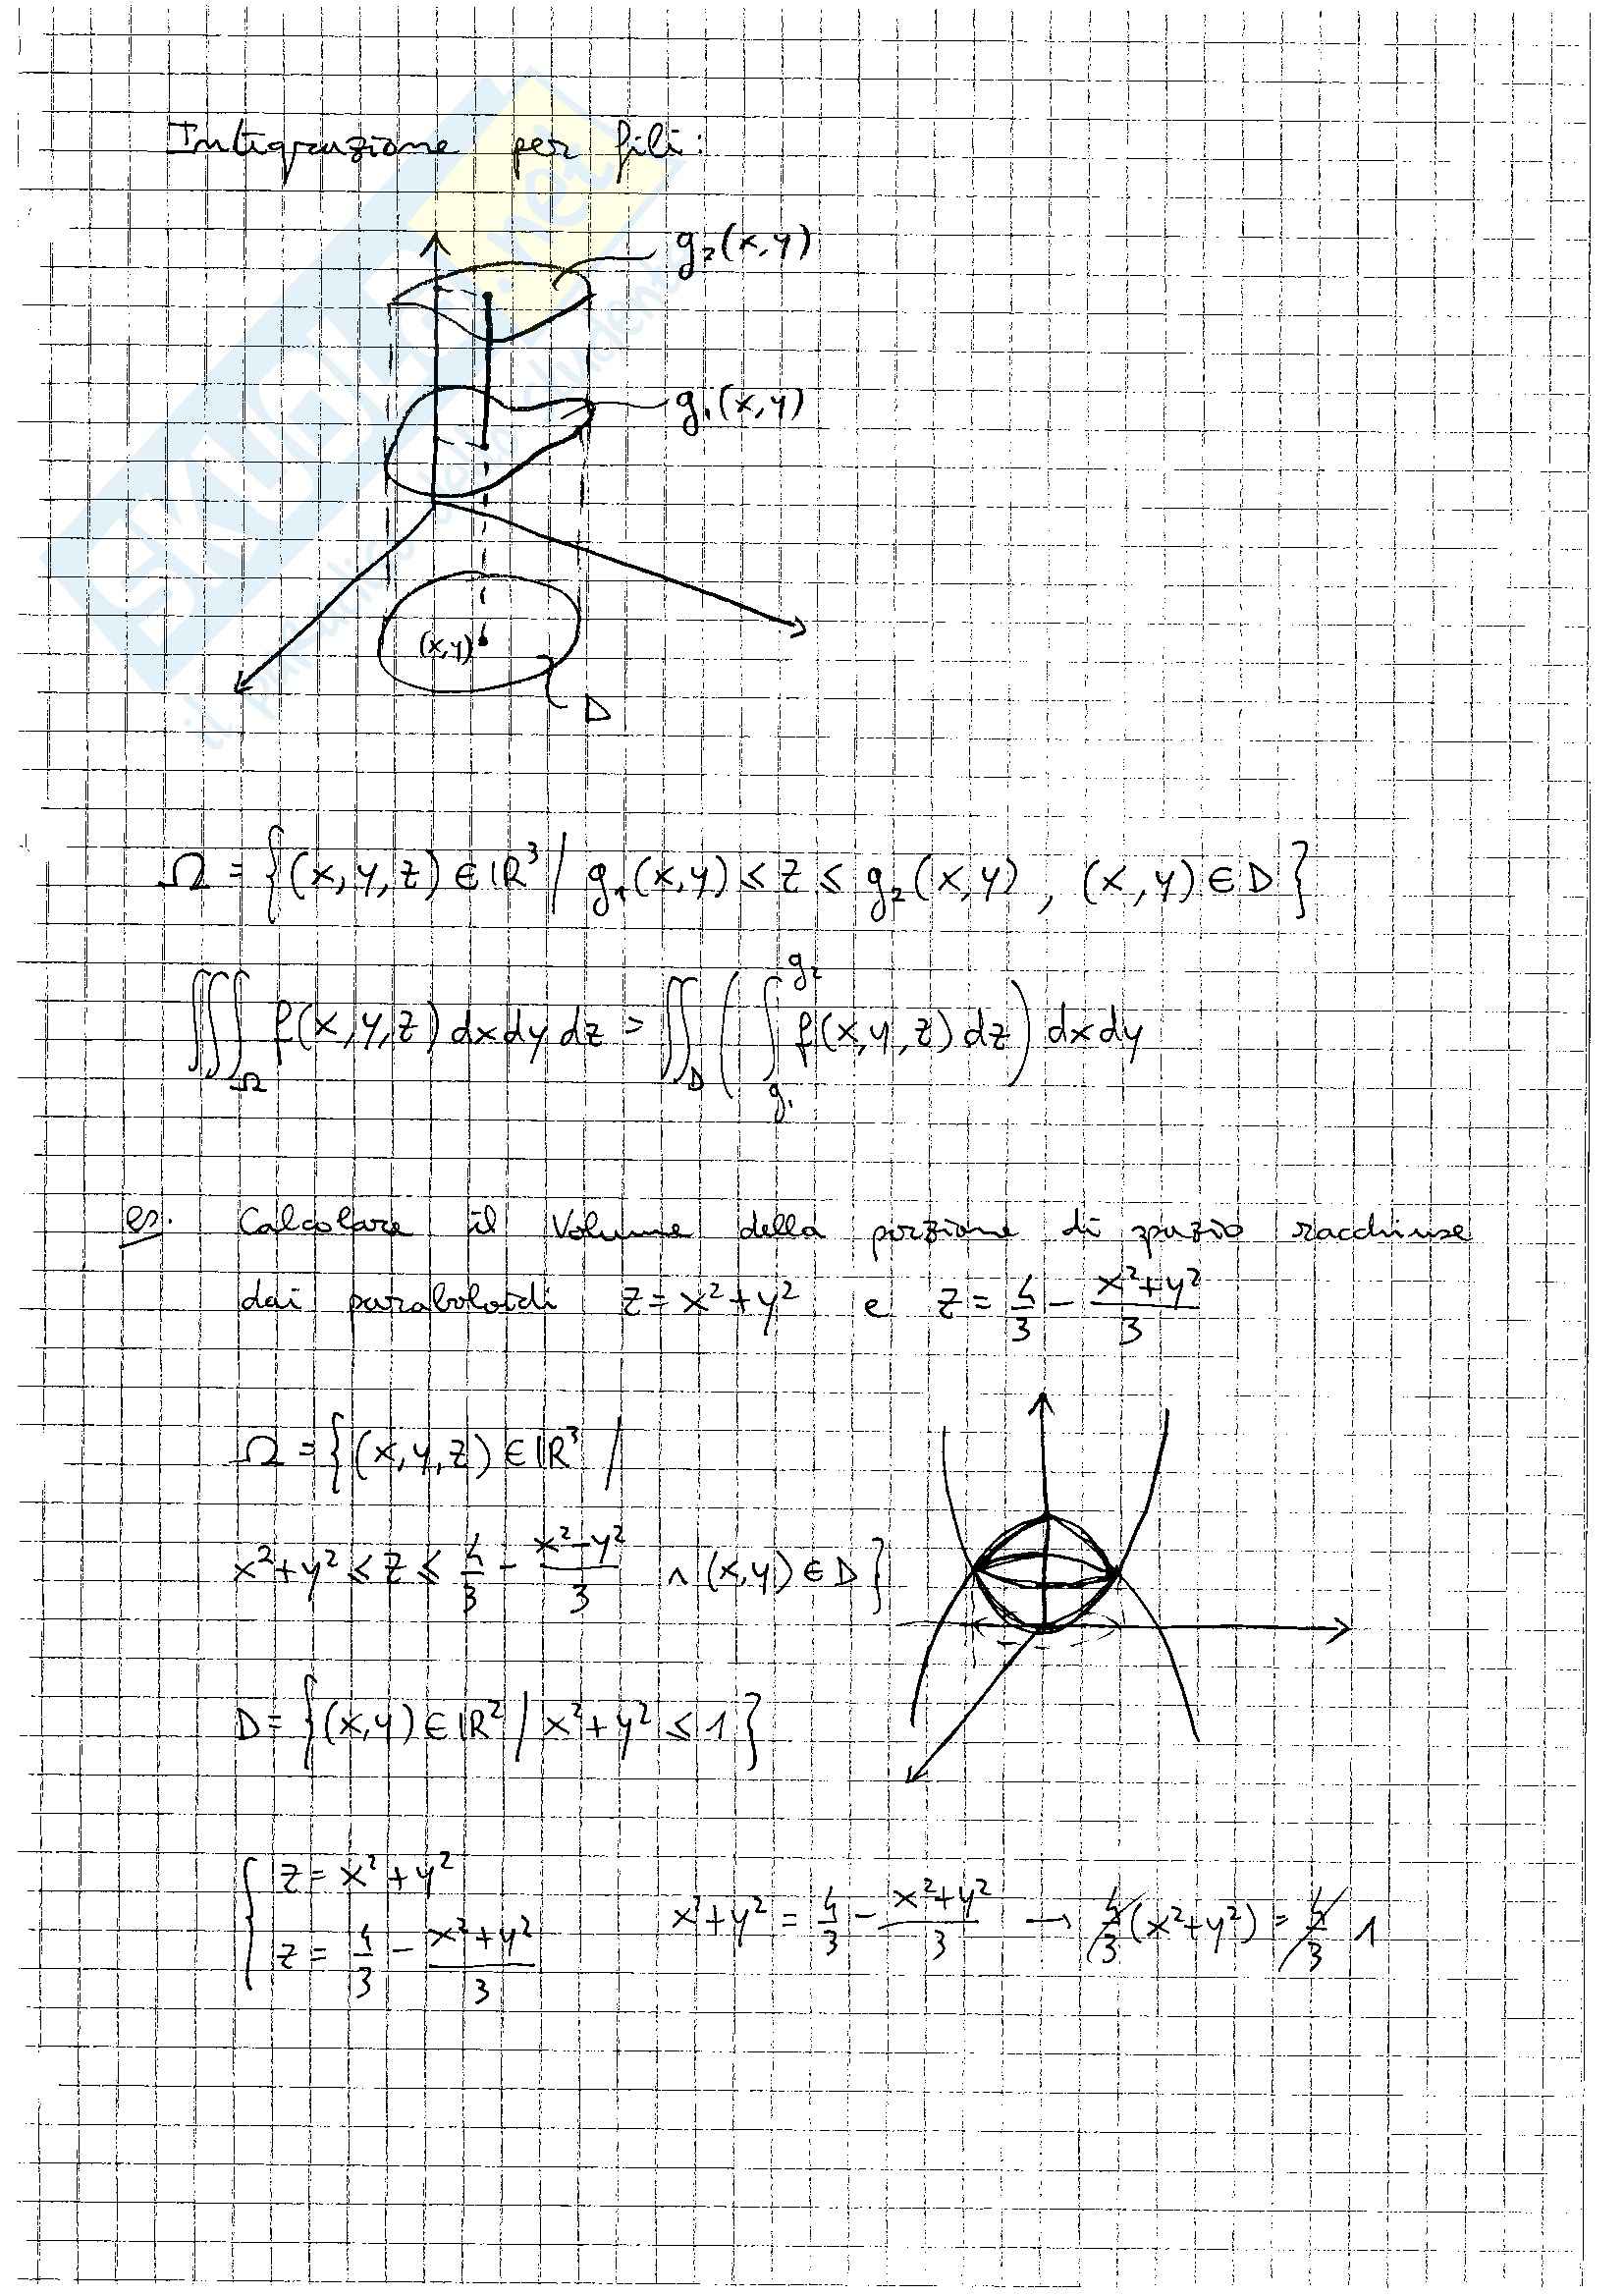 Integrazione per fili:
g₂(x,y)
g₁(x,y)
(x,y)
D
Ω = {(x,y,z) ∈ ℝ³ / g₁(x,y) ≤ z ≤ g₂(x,y) , (x,y) ∈ D}
∭_Ω f(x,y,z) dx dy dz = ∬_D ( ∫_{g₁}^{g₂} f(x,y,z) dz ) dx dy
es. Calcolare il Volume della porzione di spazio racchiuse
dai paraboloidi z = x²+y² e z = 4/3 - (x²+y²)/3
Ω = {(x,y,z) ∈ ℝ³ /
x²+y² ≤ z ≤ 4/3 - (x²-y²)/3 ∧ (x,y) ∈ D}
D = {(x,y) ∈ ℝ² / x²+y² ≤ 1}
{ z = x²+y²
z = 4/3 - (x²+y²)/3 x²+y² = 4/3 - (x²+y²)/3 → 4/3 (x²+y²) = 4/3 1